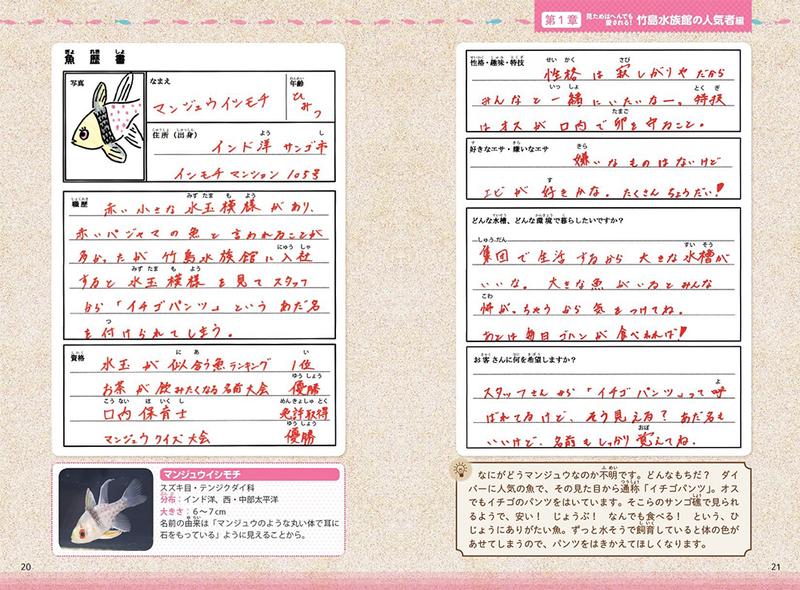 第1章 見ためはへんでも愛される！ 竹島水族館の人気者編
魚歴書
写真
なまえ
マンジュウイシモチ
年齢
ひみつ
住所（出身）
インド洋 サンゴ市
イシモチマンション 105号
職歴
赤い小さな水玉模様があり、
赤いパジャマの魚と言われることが
多かったが竹島水族館に入社
すると水玉模様を見てスタッフ
から「イチゴパンツ」というあだ名
を付けられてしまう。
資格
水玉が似合う魚ランキング 1位
お茶が飲みたくなる名前大会 優勝
口内保育士 免許取得
マンジュウクイズ大会 優勝
マンジュウイシモチ
スズキ目・テンジクダイ科
分布：インド洋、西・中部太平洋
大きさ：6～7cm
名前の由来は「マンジュウのような丸い体で耳に
石をもっている」ように見えることから。
20
性格・趣味・特技
性格は寂しがりやだから
みんなと一緒にいたいなー。特技
はオスが口内で卵を守ること。
好きなエサ・嫌いなエサ
嫌いなものはないけど
エビが好きかな。たくさんちょうだい！
どんな水槽、どんな環境で暮らしたいですか？
集団で生活するから大きな水槽が
いいな。大きな魚がいるとみんな
怖がっちゃうから気をつけてね。
あとは毎日ゴハンが食べれれば！
お客さんに何を希望しますか？
スタッフさんから「イチゴパンツ」って呼
ばれてるけど、そう見える？あだ名も
いいけど、名前もしっかり覚えてね。
なにがどうマンジュウなのか不明です。どんなもちだ？ ダイ
バーに人気の魚で、その見た目から通称「イチゴパンツ」。オス
でもイチゴのパンツをはいています。そこらのサンゴ礁で見られ
るようで、安い！ じょうぶ！ なんでも食べる！ という、ひ
じょうにありがたい魚。ずっと水そうで飼育していると体の色が
あせてしまうので、パンツをはきかえてほしくなります。
21